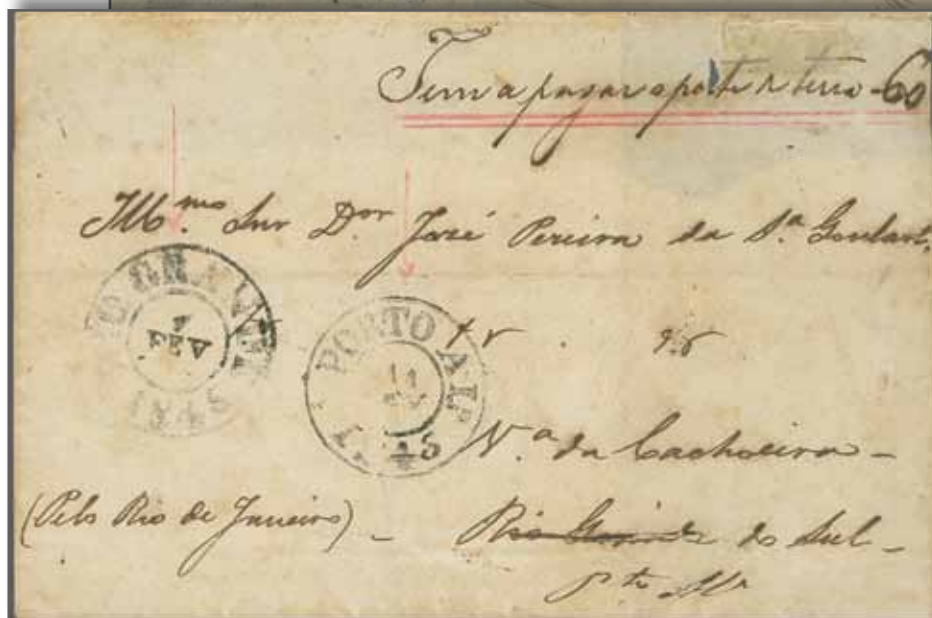 Tem a pagar o porte de terra - 60
Ill.mo Snr D.or José Pereira da S.a Goulart.
RIO GRANDE
7
FEV
PORTO AL
11
1845
V.a da Cachoeira -
(Pelo Rio de Janeiro) - Rio Grande do Sul -